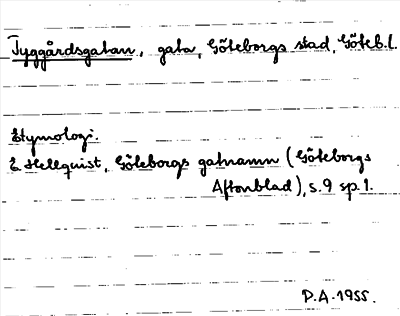 Tyggårdsgatan, gata, Göteborgs stad, Göteb.l.
Etymologi.
E Hellquist, Göteborgs gatnamn (Göteborgs
Aftonblad), s. 9 sp. 1.
P.A. 1955.